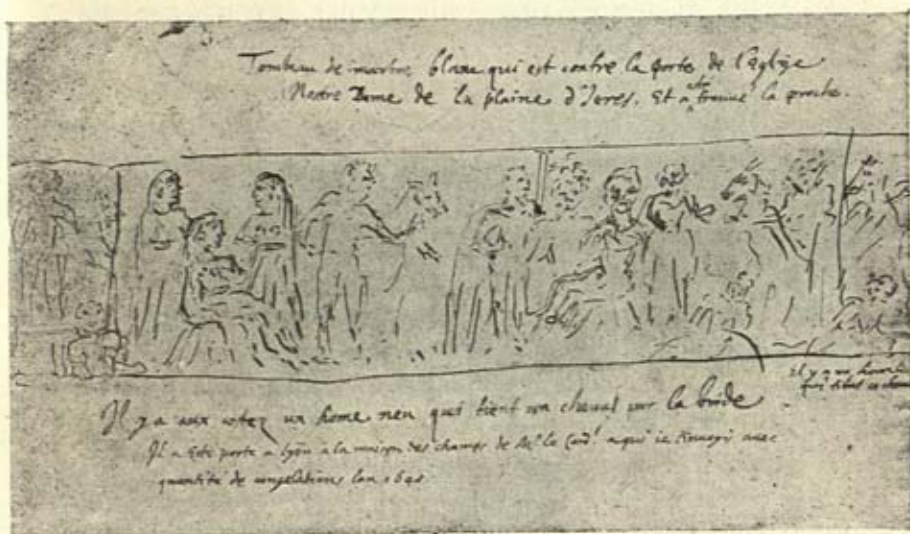 Tombeau de marbre blanc qui est contre la porte de l'aglise
Nostre Dame de la plaine d'Ieres. Et a esté trouué la proche.
Il y a un home
qui tient ce cheval
Il y a aux costez un home neu qui tient un cheval par la bride
Il a esté porté a Lyon a la maison des champs de Mr le Card.l a qui je l'enuoyé auec
quantité de congelations l'an 164